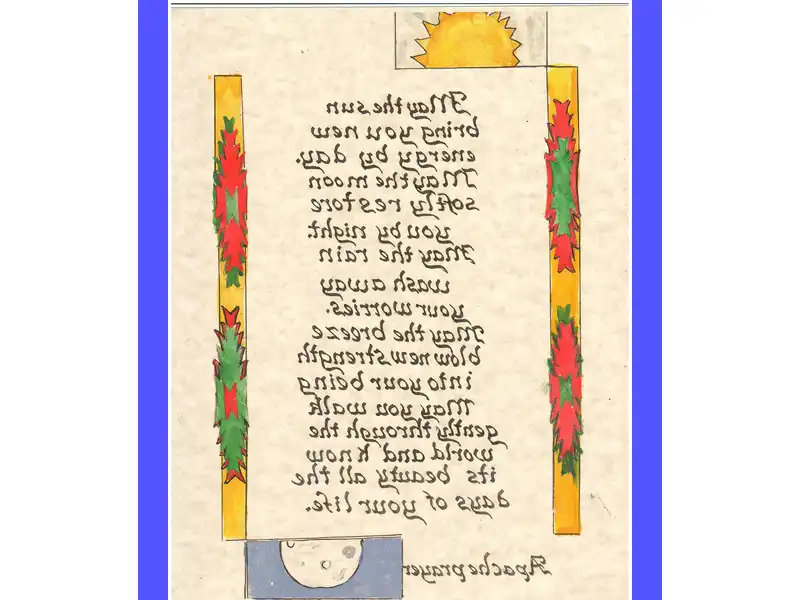 May the sun
bring you new
energy by day.
May the moon
softly restore
you by night.
May the rain
wash away
your worries.
May the breeze
blow new strength
into your being
May you walk
gently through the
world and know
its beauty all the
days of your life.
Apache prayer